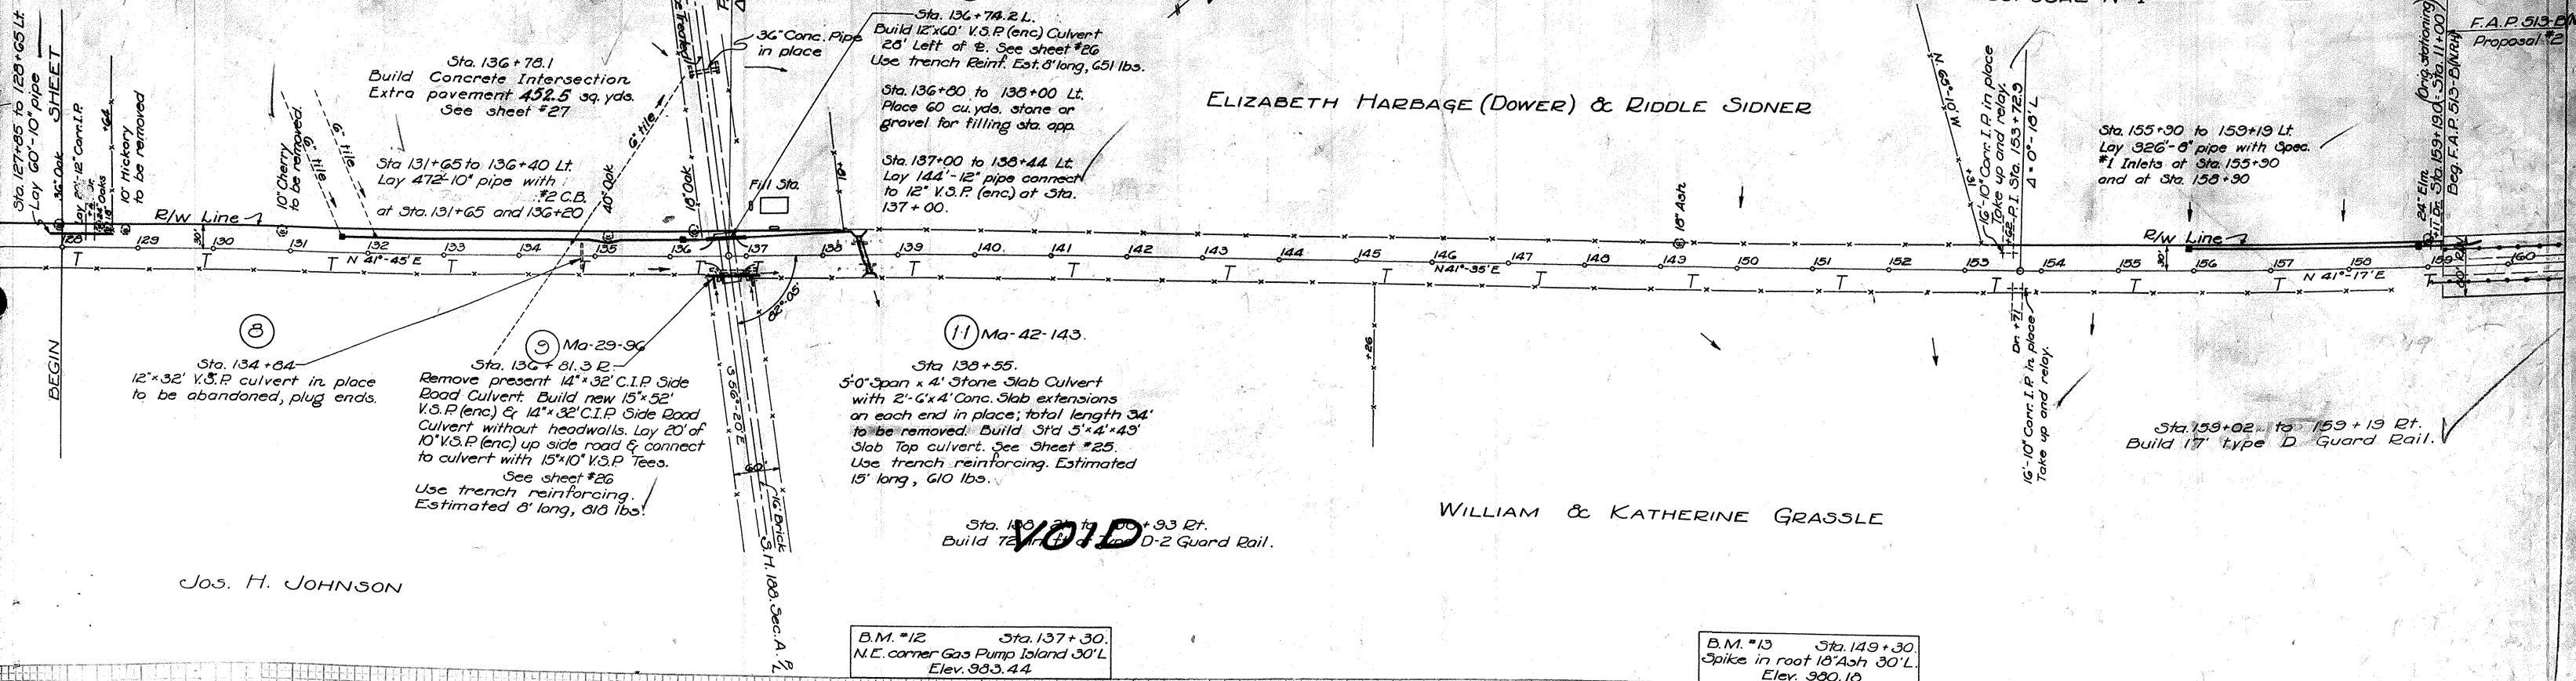 Sta. 127+85 to 128+65 Lt.
Lay 60'-10" pipe
SHEET
BEGIN
36" Oak
10" Hickory
to be removed
R/W Line
10" Cherry
to be removed.
6" tile
6" tile
Sta. 136+78.1
Build Concrete Intersection
Extra pavement 452.5 sq. yds.
See sheet #27
Sta 131+65 to 136+40 Lt.
Lay 472'-10" pipe with
#2 C.B.
at Sta. 131+65 and 136+20
40" Oak
6" tile
18" Oak
36" Conc. Pipe
in place
Fill Sta.
Sta. 136+74.2 L.
Build 12"x60' V.S.P. (enc) Culvert
28' Left of ℄. See sheet #26
Use trench Reinf. Est. 8' long, 651 lbs.
Sta. 136+80 to 138+00 Lt.
Place 60 cu. yds. stone or
gravel for filling sta. app.
Sta. 137+00 to 138+44 Lt.
Lay 144'-12" pipe connect
to 12" V.S.P. (enc) at Sta.
137+00.
ELIZABETH HARBAGE (DOWER) & RIDDLE SIDNER
18" Ash
N. 65°-10' W
+31
16'-10" Corr. I.P. in place
Take up and relay.
+62 P.I. Sta. 153+72.9
Δ = 0°-18' L
Sta. 155+90 to 159+19 Lt.
Lay 326'-8" pipe with Spec.
#1 Inlets at Sta. 155+90
and at Sta. 158+90
R/W Line
24" Elm.
Beg. F.A.P. 513-B(NRH)
Proposal #2
128 129 130 131 132 133 134 135 136 137 138 139 140 141 142 143 144 145 146 147 148 149 150 151 152 153 154 155 156 157 158 159 160
30'
30'
N 41°-45' E
N 41°-35' E
N 41°-17' E
T T T T T T T T T T T T T T T T T
82°-05'
8
Sta. 134+84
12"x32' V.S.P. culvert in place
to be abandoned, plug ends.
9 Ma-29-96
Sta. 136+81.3 R.
Remove present 14"x32' C.I.P. Side
Road Culvert. Build new 15"x52'
V.S.P. (enc) & 14"x32' C.I.P. Side Road
Culvert without headwalls. Lay 20' of
10" V.S.P. (enc) up side road & connect
to culvert with 15"x10" V.S.P. Tees.
See sheet #26
Use trench reinforcing.
Estimated 8' long, 818 lbs.
S 56°-20' E
60'
16' Brick
S.H. 188. Sec. A P/L
11 Ma-42-143.
Sta 138+55.
5'-0" Span x 4' Stone Slab Culvert
with 2'-6"x4' Conc. Slab extensions
on each end in place; total length 34'
to be removed. Build St'd 5'x4'x49'
Slab Top culvert. See Sheet #25.
Use trench reinforcing. Estimated
15' long, 610 lbs.
+26
+93 Rt.
Build 72 D-2 Guard Rail.
VOID
Dn +71
16'-10" Corr. I.P. in place
Take up and relay.
Sta. 159+02 to 159+19 Rt.
Build 17' type D Guard Rail.
WILLIAM & KATHERINE GRASSLE
JOS. H. JOHNSON
B.M. #12 Sta. 137+30.
N.E. corner Gas Pump Island 30' L
Elev. 983.44
B.M. #13 Sta. 149+30.
Spike in root 18" Ash 30' L.
Elev. 980.18